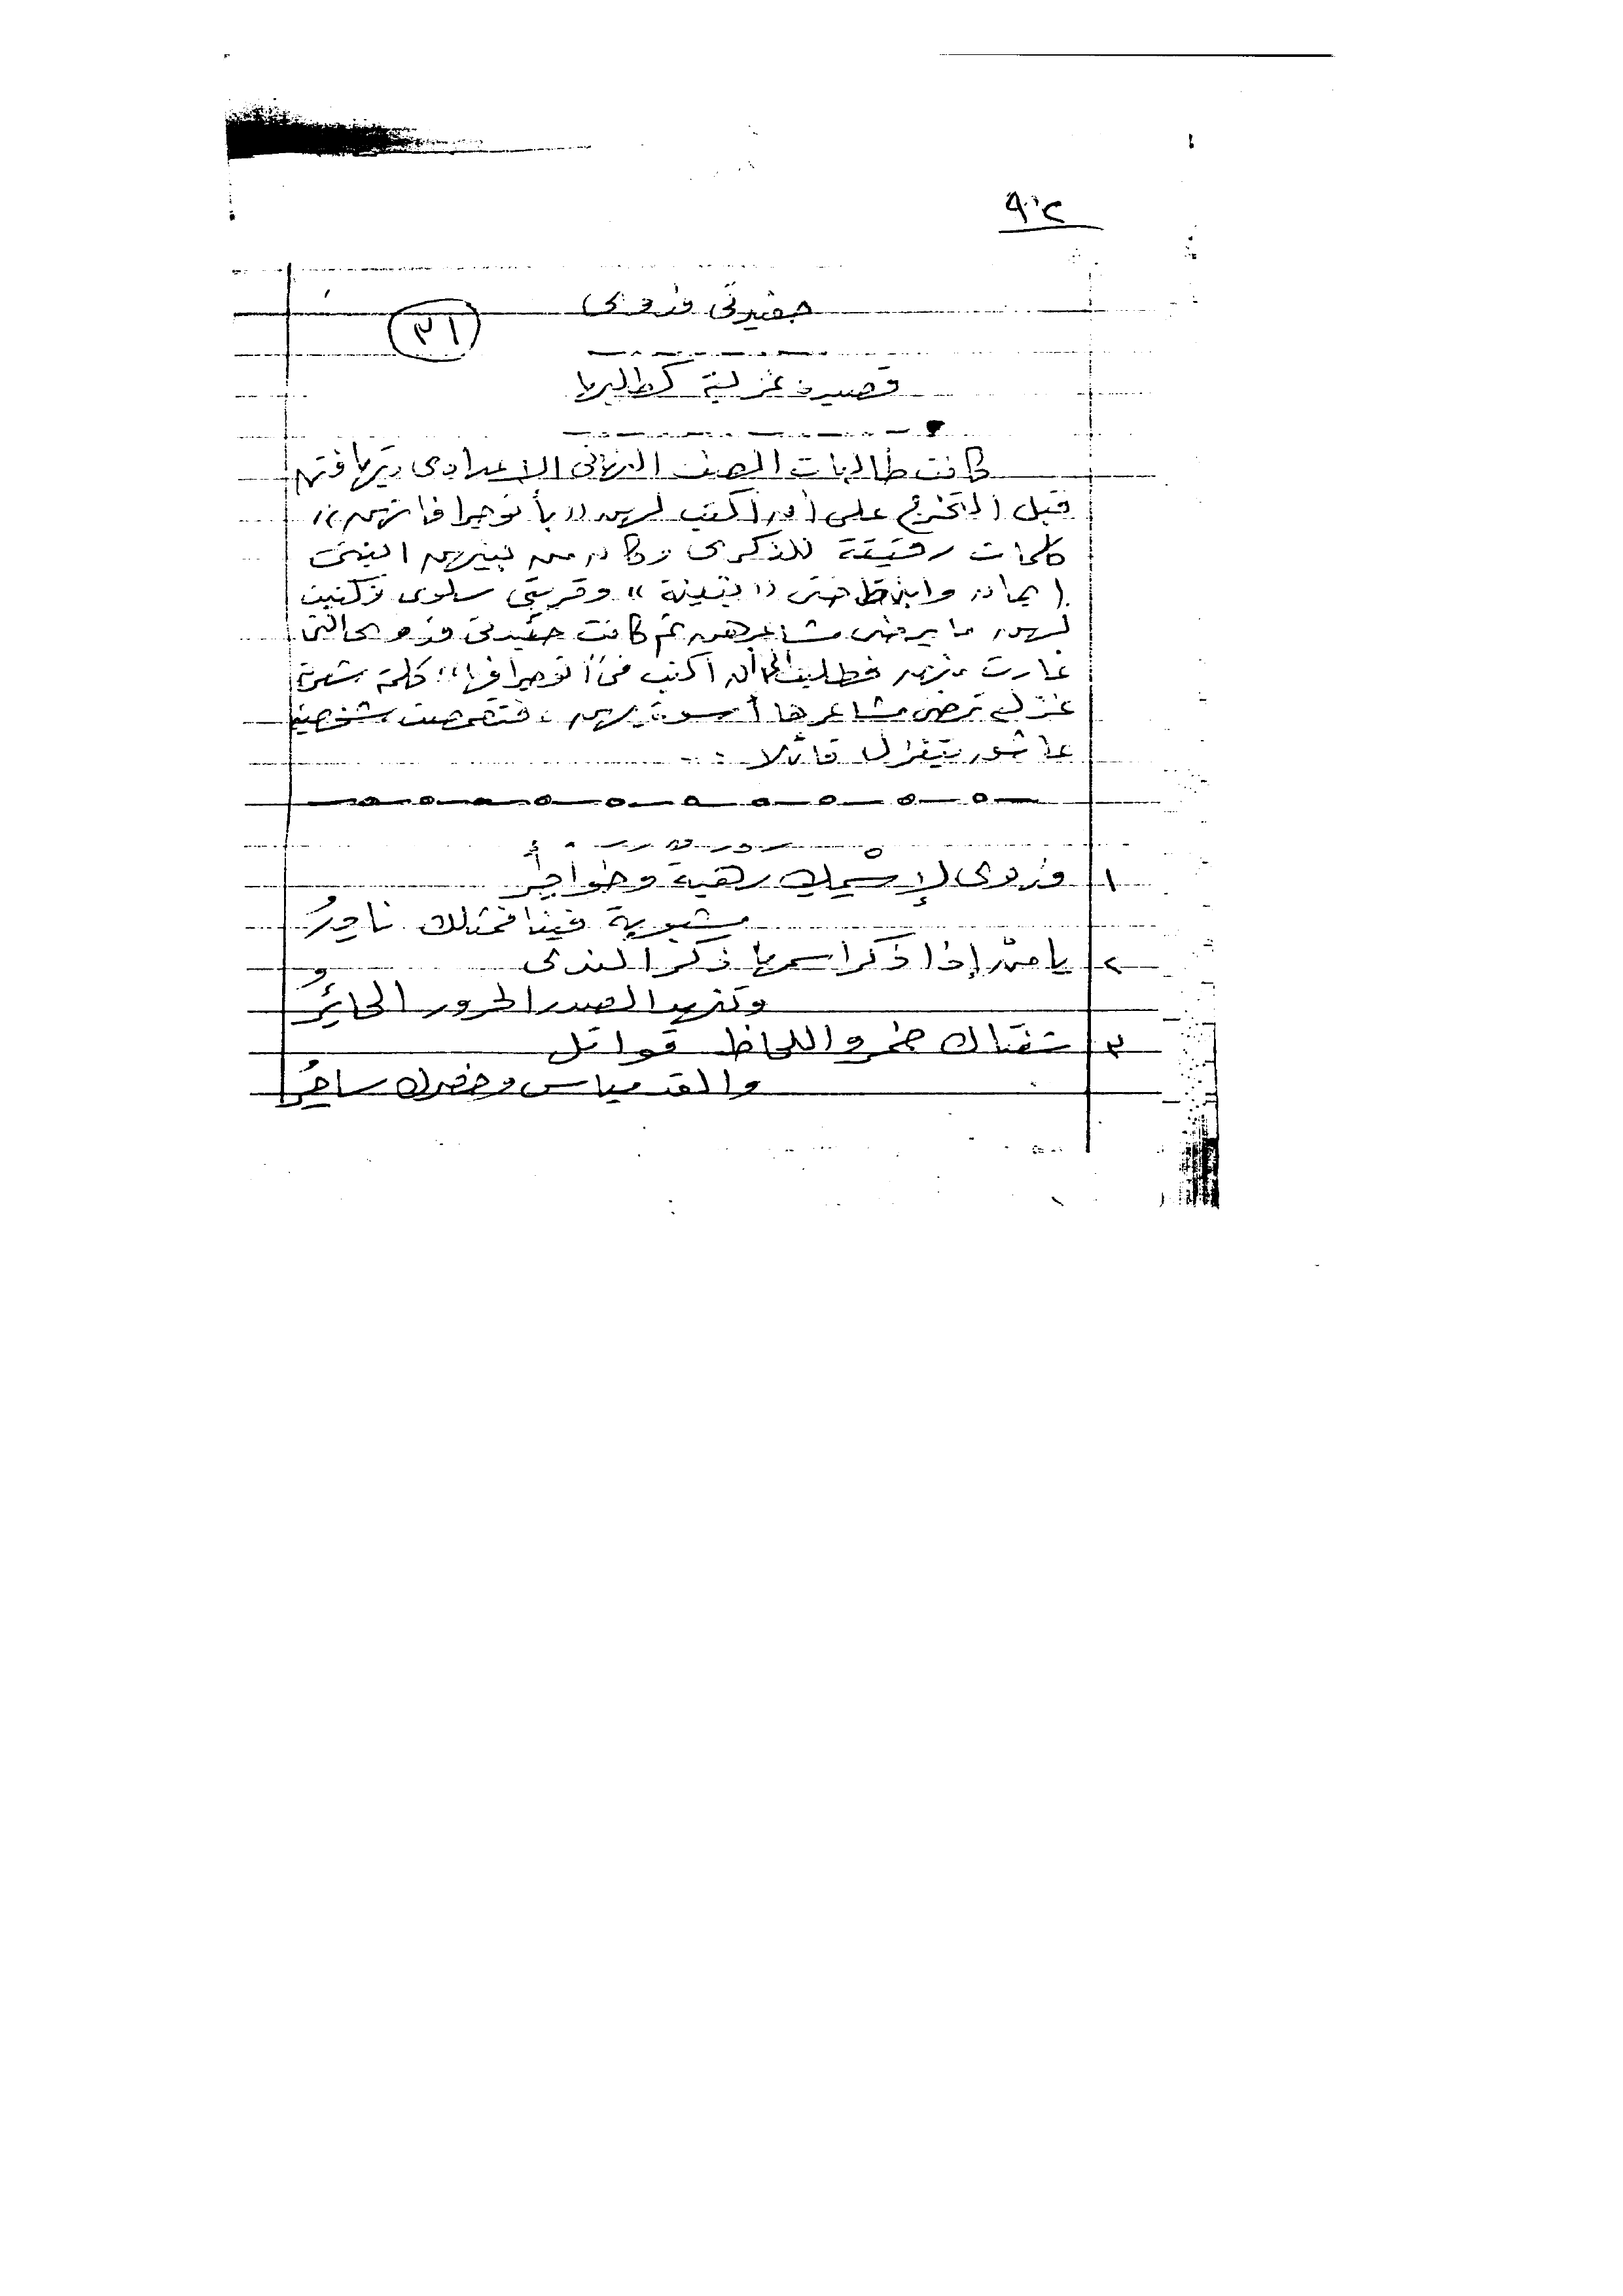 حفيدتي فدوى
٣١
قصيدة غزلية كطلبها
كانت طالبات الصف النهائي الاعدادي يتهافتن
قبل التخرج على أن أكتب لهن "بأتوجرافاتهن"
كلمات رقيقة للذكرى وكان من بينهن ابنتى
إيمان وابنة اختى "بثينة" وقريبتى سلوى فكتبت
لهن ما يرضى مشاعرهن ثم كانت حفيدتى فدوى التى
غارت منهن فطلبت الى أن أكتب فى "أتوجرافها" كلمة شعرية
غزلية ترضى مشاعرها أسوة بهن، فتقمصت شخصية
عاشور يتغزل قائلا :-
١ فدوى لإسْمِكِ رهبة وخواطرُ
مشبوبة فينا فمثلك نادرُ
٢ يا منْ إذا ذكر اسمها ذكر الندى
وتنهد الصدر الحرور الحائرُ
٣ شفتاك خمر واللحاظ قواتل
والقد مياس وخصرك ساحرُ